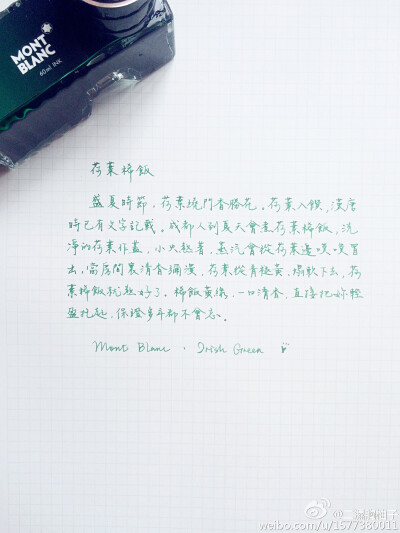 MONT
BLANC
60ml INK
荷葉稀飯
盛夏時節，荷葉繞門香勝花。荷葉入饌，漢唐
時已有文字記載。成都人到夏天會煮荷葉稀飯，洗
淨的荷葉作蓋，小火熬著，蒸汽會從荷葉邊噗噗冒
出，當房間裏清香瀰漫，荷葉從青轉黃，塌軟下去，荷
葉稀飯就熬好了。稀飯黃綠，一口清香，直接把妳輕
盈托起，保證多年都不會忘。
Mont Blanc · Irish Green
weibo.com/u/1577380011